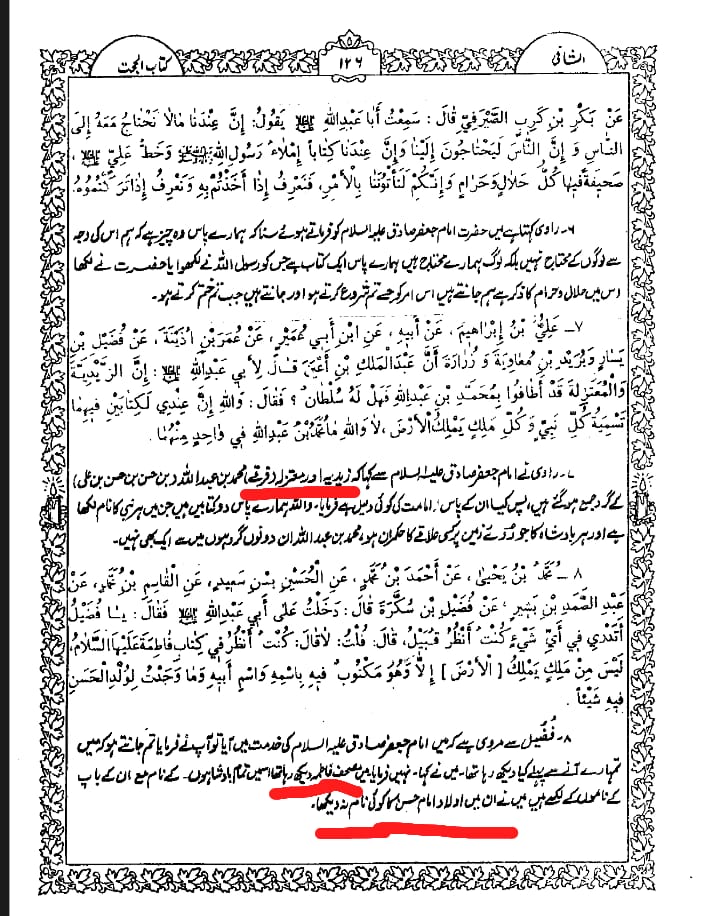 الشافی
۱۲۶
کتاب الحجت
عَنْ بَكْرِ بْنِ كَرِبِ الصَّيْرَفِيِّ قَالَ : سَمِعْتُ أَبَا عَبْدِاللهِ يَقُولُ: إِنَّ عِنْدَنَا مَالَا نَحْتَاجُ مَعَهُ إِلَى
النَّاسِ وَ إِنَّ النَّاسَ لَيَحْتَاجُونَ إِلَيْنَا وَإِنَّ عِنْدَنَا كِتَاباً إِمْلَاءُ رَسُولِ اللهِ وَخَطُّ عَلِيٍّ ،
صَحِيفَةً فِيهَا كُلُّ حَلَالٍ وَحَرَامٍ وَإِنَّكُمْ لَتَأْتُونَنَا بِالْأَمْرِ، فَنَعْرِفُ إِذَا أَخَذْتُمْ بِهِ وَنَعْرِفُ إِذَا تَرَكْتُمُوهُ.
۶۔ راوی کہتا ہے میں حضرت امام جعفر صادق علیہ السلام کو فرماتے ہوئے سنا کہ ہمارے پاس وہ چیز ہے کہ ہم اس کی وجہ
سے لوگوں کے محتاج نہیں بلکہ لوگ ہمارے محتاج ہیں ہمارے پاس ایک کتاب ہے جس کو رسول اللہ نے لکھوایا حضرت نے لکھا
اس میں حلال و حرام کا ذکر ہے ہم جانتے ہیں اس امر کو جسے تم شروع کرتے ہو اور جانتے ہیں جب تم ختم کرتے ہو۔
۷ـ عَلِيُّ بْنُ إِبْرَاهِيمَ، عَنْ أَبِيهِ، عَنِ ابْنِ أَبِي عُمَيْرٍ، عَنْ عُمَرَ بْنِ اُذَيْنَةَ ، عَنْ فُضَيْلِ بْنِ
يَسَارٍ وَبُرَيْدِ بْنِ مُعَاوِيَةَ وَ زُرَارَةَ أَنَّ عَبْدَالْمَلِكِ بْنَ أَعْيَنَ قَالَ لِأَبِي عَبْدِاللهِ : إِنَّ الزَّيْدِيَّةَ
وَالْمُعْتَزِلَةَ قَدْ أَطَافُوا بِمُحَمَّدِ بْنِ عَبْدِاللهِ فَهَلْ لَهُ سُلْطَانٌ ؟ فَقَالَ: وَاللهِ إِنَّ عِنْدِي لَكِتَابَيْنِ فِيهِمَا
تَسْمِيَةُ كُلِّ نَبِيٍّ وَ كُلِّ مَلِكٍ يَمْلِكُ الْأَرْضَ ، لَا وَاللهِ مَا مُحَمَّدُ بْنُ عَبْدِاللهِ فِي وَاحِدٍ مِنْهُمَا .
۷۔ راوی نے امام جعفر صادق علیہ السلام سے کہا کہ زیدیہ اور معتزلہ (فرقے) محمد بن عبداللہ (بن حسن بن حسن بن علی)
کے گرد جمع ہو گئے ہیں، پس کیا ان کے پاس امامت کی کوئی دلیل ہے فرمایا۔ واللہ ہمارے پاس دو کتابیں ہیں جن میں ہر نبی کا نام لکھا
ہے اور ہر بادشاہ کا جو روئے زمین پر کسی علاقے کا حکمران ہو، محمد بن عبداللہ ان دونوں گروہوں میں سے ایک بھی نہیں۔
۸ ـ مُحَمَّدُ بْنُ يَحْيَى، عَنْ أَحْمَدَ بْنِ مُحَمَّدٍ، عَنِ الْحُسَيْنِ بْنِ سَعِيدٍ، عَنِ الْقَاسِمِ بْنِ مُحَمَّدٍ، عَنْ
عَبْدِ الصَّمَدِ بْنِ بَشِيرٍ ، عَنْ فُضَيْلِ بْنِ سُكَّرَةَ قَالَ: دَخَلْتُ عَلَى أَبِي عَبْدِاللهِ فَقَالَ: يَا فُضَيْلُ
أَتَدْرِي فِي أَيِّ شَيْءٍ كُنْتُ أَنْظُرُ قُبَيْلُ، قَالَ: قُلْتُ: لَا، قَالَ: كُنْتُ أَنْظُرُ فِي كِتَابِ فَاطِمَةَ عَلَيْهَا السَّلَامُ،
لَيْسَ مِنْ مَلِكٍ يَمْلِكُ [ الْأَرْضَ ] إِلَّا وَهُوَ مَكْتُوبٌ فِيهِ بِاسْمِهِ وَاسْمِ أَبِيهِ وَمَا وَجَدْتُ لِوُلْدِ الْحَسَنِ
فِيهِ شَيْئاً .
۸۔ فُضَیل سے مروی ہے کہ میں امام جعفر صادق علیہ السلام کی خدمت میں آیا تو آپ نے فرمایا تم جانتے ہو کہ میں
تمہارے آنے سے پہلے کیا دیکھ رہا تھا۔ میں نے کہا۔ نہیں فرمایا میں مصحف فاطمہ دیکھ رہا تھا اس میں تمام بادشاہوں۔ کے نام مع ان کے باپ
کے ناموں کے لکھے ہیں میں نے ان میں اولاد امام حسن کا کوئی نام نہ دیکھا۔